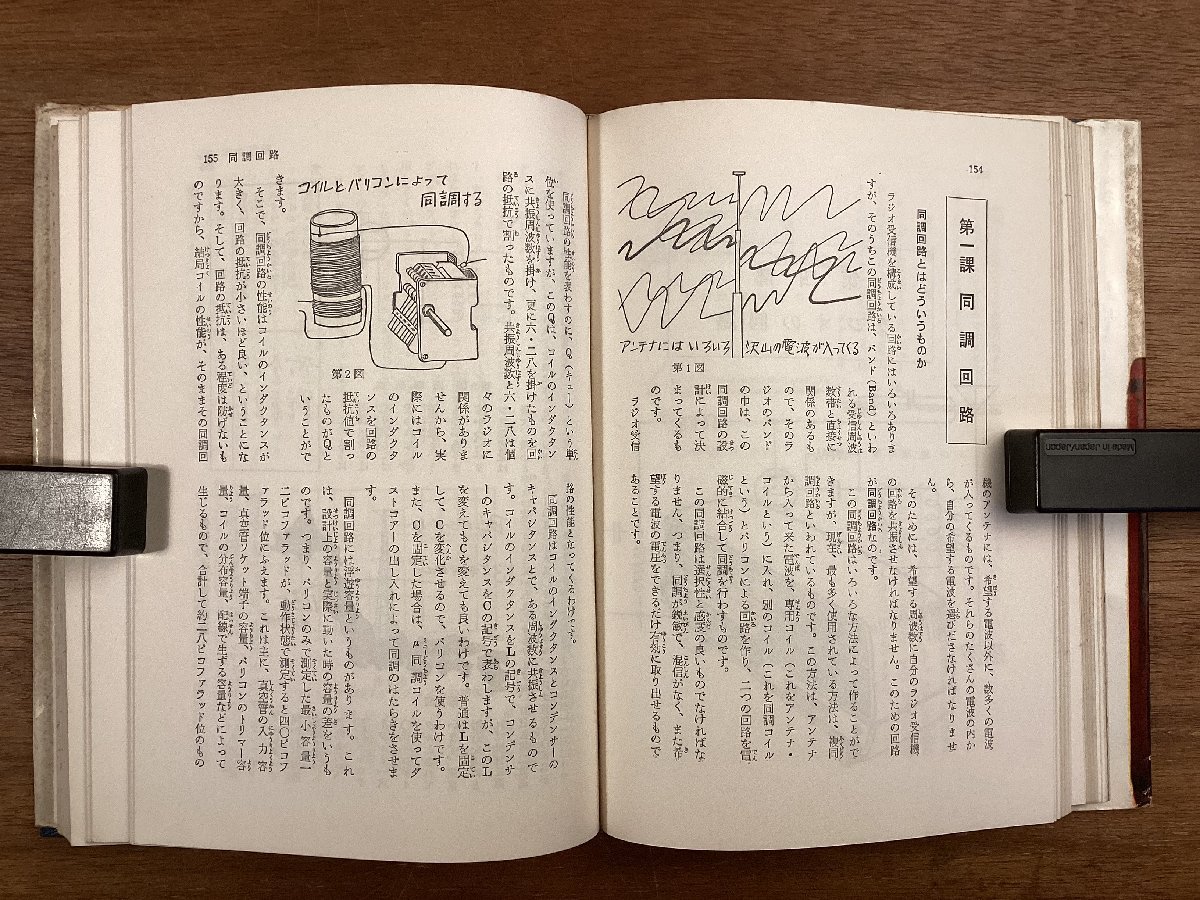 154
第一課 同調回路
同調回路とはどういうものか
ラジオ受信機を構成している回路にはいろいろありま
すが、そのうちこの同調回路は、バンド(Band)といわ
れる受信周波
数帯と直接に
関係のあるも
ので、そのラ
ジオのバンド
の巾は、この
同調回路の設
計によって決
まってくるも
のです。
ラジオ受信
アンテナにはいろいろ沢山の電波が入ってくる
第1図
機のアンテナには、希望する電波以外に、数多くの電波
が入ってくるものです。それらのたくさんの電波の内か
ら、自分の希望する電波を選びださなければなりませ
ん。
そのためには、希望する周波数に自分のラジオ受信機
の回路を共振させなければなりません。このための回路
が同調回路なのです。
この同調回路はいろいろな方法によって作ることがで
きますが、現在、最も多く使用されている方法は、複同
調回路といわれているものです。この方法は、アンテナ
から入って来た電波を、専用コイル(これをアンテナ・
コイルという)に入れ、別のコイル(これを同調コイル
という)とバリコンによる回路を作り、二つの回路を電
磁的に結合して同調を行わすものです。
この同調回路は選択性と感度の良いものでなければな
りません。つまり、同調が鋭敏で、混信がなく、また希
望する電波の電圧をできるだけ有効に取り出せるもので
あることです。
155 同調回路
同調回路の性能を表わすのに、Q(キュー)という単
位を使っていますが、このQは、コイルのインダクタン
スに共振周波数を掛け、更に六・二八を掛けたものを回
路の抵抗で割ったものです。共振周波数と六・二八は個
々のラジオに
関係がありま
せんから、実
際にはコイル
のインダクタ
ンスを回路の
抵抗値で割っ
たものがQと
いうことがで
きます。
コイルとバリコンによって
同調する
第2図
そこで、同調回路の性能はコイルのインダクタンスが
大きく、回路の抵抗が小さいほど良い、ということにな
ります。そして、回路の抵抗は、ある程度は防げないも
のですから、結局コイルの性能が、そのままその同調回
路の性能となってくるわけです。
同調回路はコイルのインダクタンスとコンデンサーの
キャパシタンスとで、ある周波数に共振させるもので
す。コイルのインダクタンスをLの記号で、コンデンサ
ーのキャパシタンスをCの記号で表わしますが、このL
を変えてもCを変えても良いわけです。普通はLを固定
して、Cを変化させるので、バリコンを使うわけです。
また、Cを固定した場合は、μ同調コイルを使ってダ
ストコアーの出し入れによって同調のはたらきをさせま
す。
同調回路には浮遊容量というものがあります。これ
は、設計上の容量と実際に動いた時の容量の差をいうも
のです。つまり、バリコンのみで測定した最小容量一
二ピコファラッドが、動作状態で測定すると四〇ピコフ
ァラッド位にふえます。これは主に、真空管の入力容
量、真空管ソケット端子の容量、バリコンのトリマー容
量、コイルの分布容量、配線で生ずる容量などによって
生じるもので、合計して約二八ピコファラッド位のもの
Made in Japan/Japon